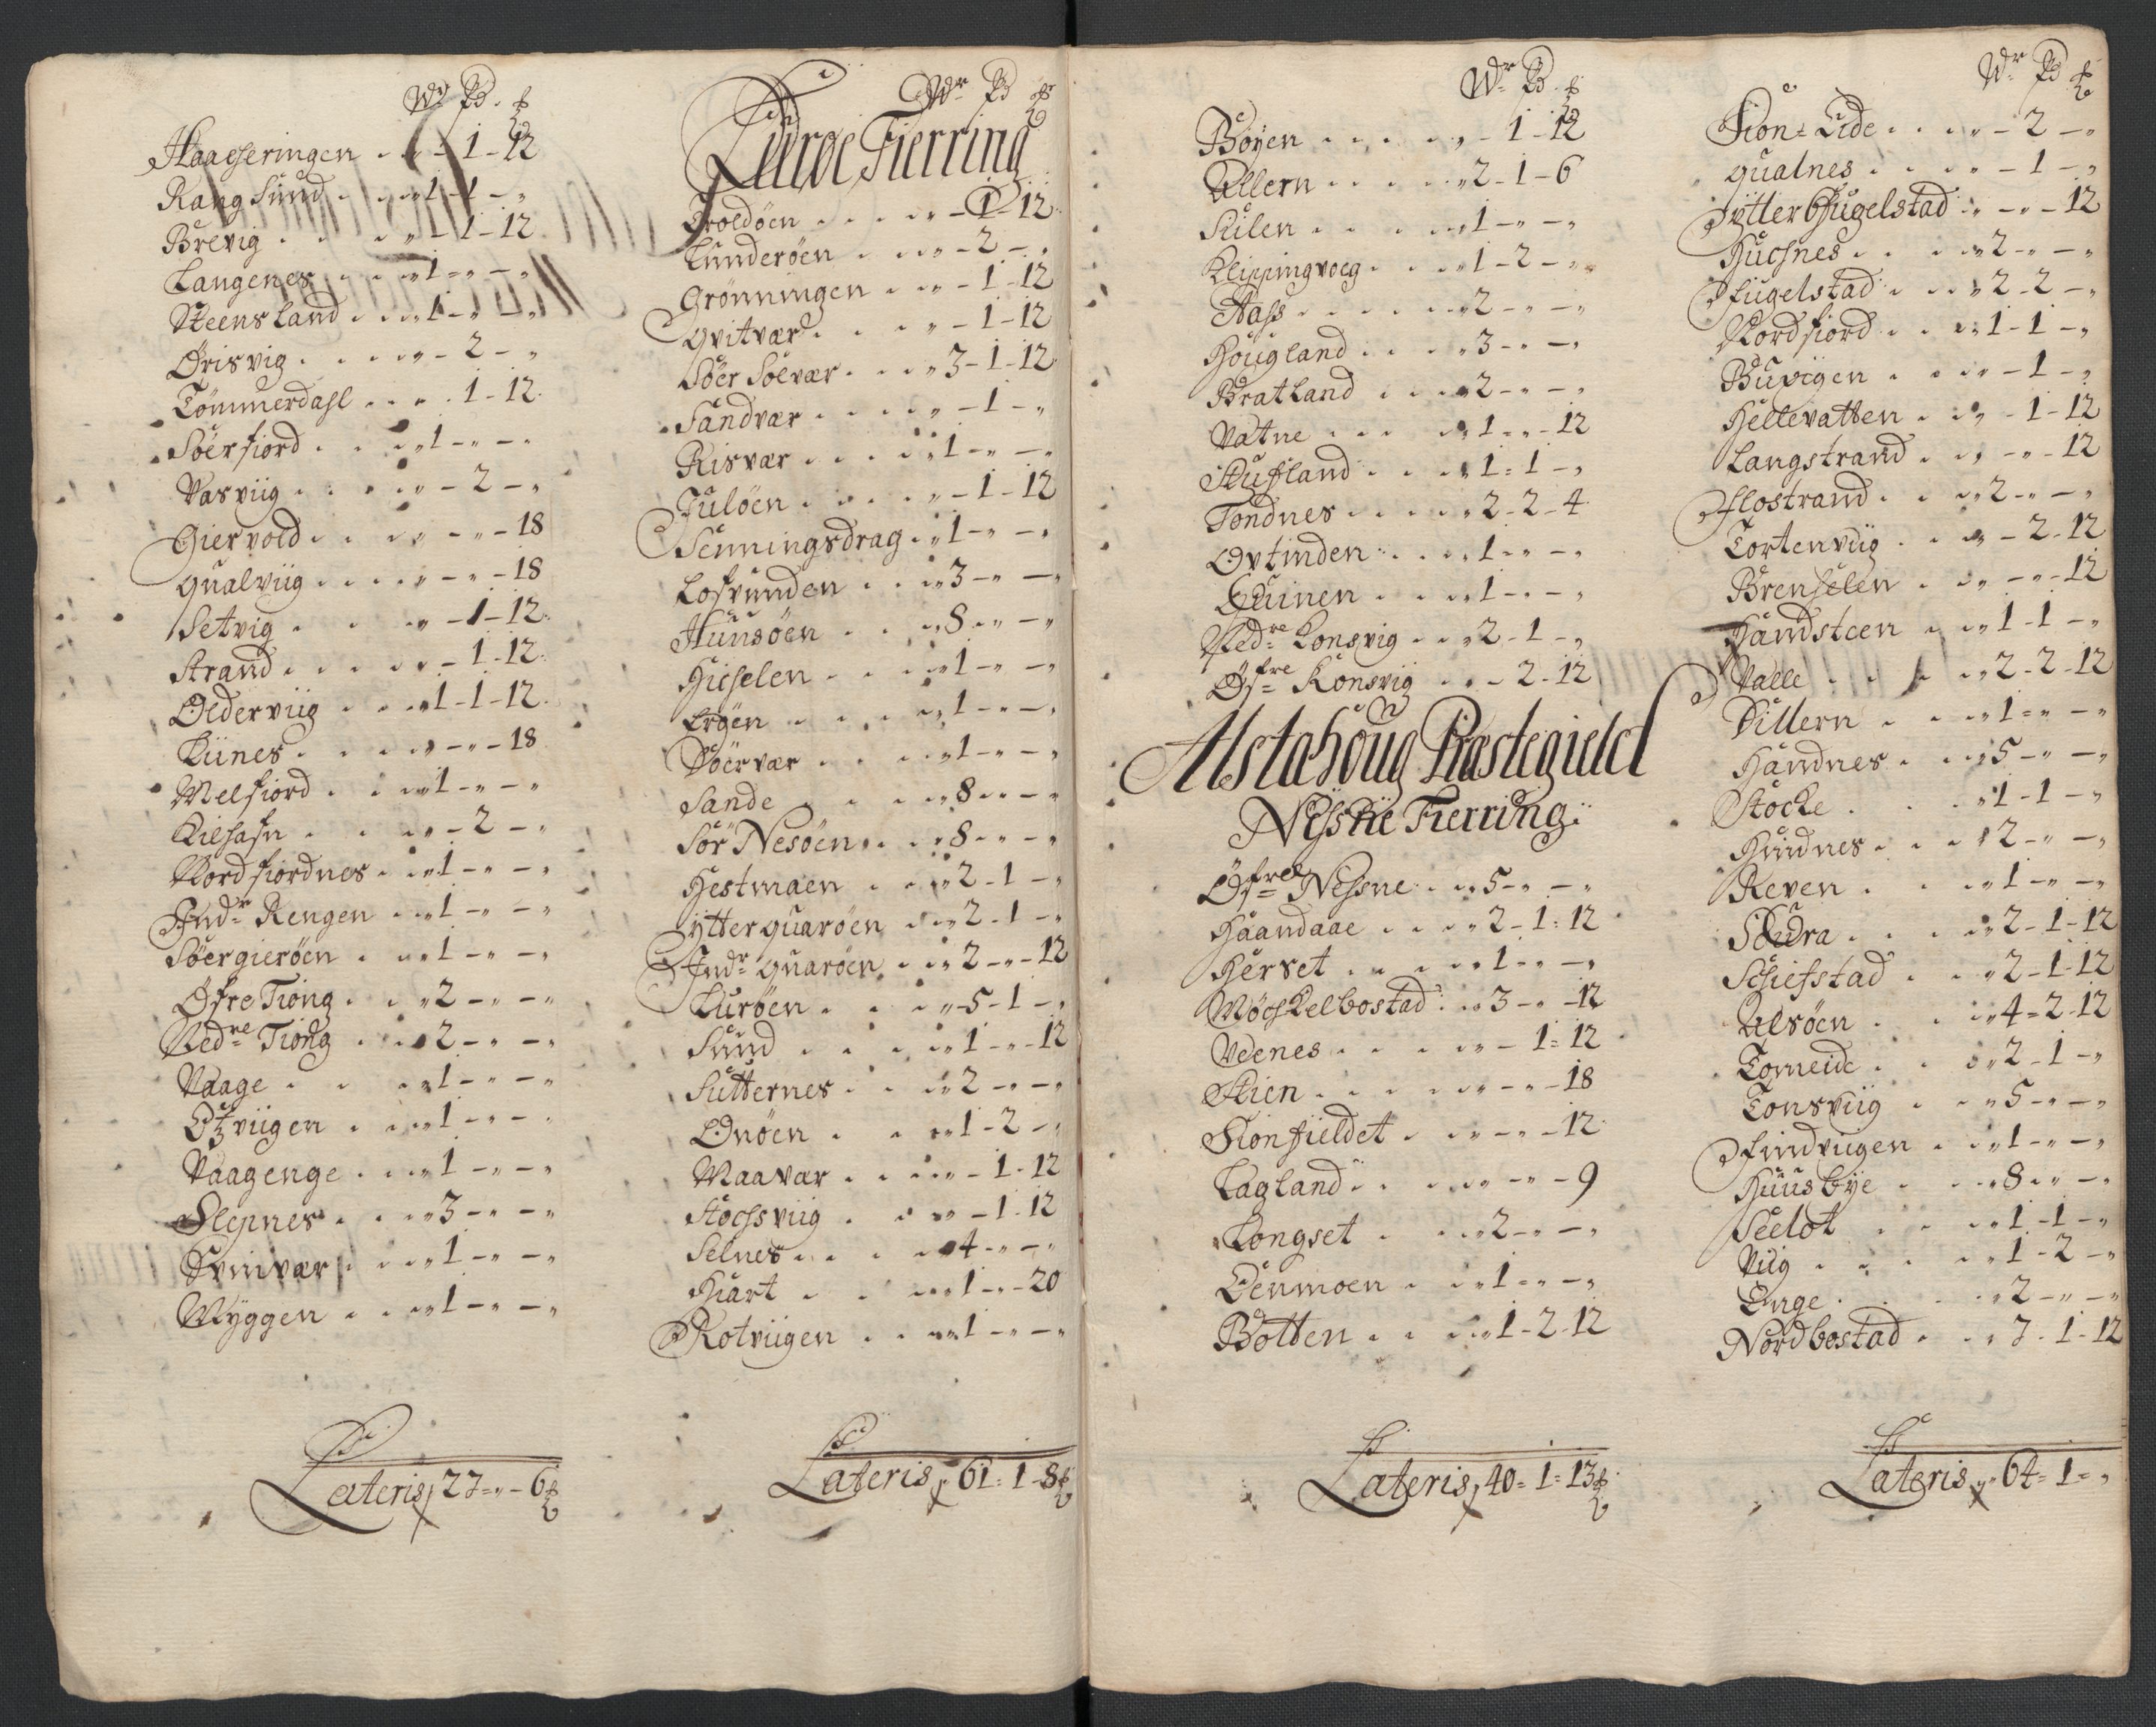 Wr Pd. ℔
Haageringen . . „ - 1 - 12
Rang Sund . . . „ 1 - 1 - „
Brevig . . . „ - 1 - 12
Langenes . . . „ 1 - „ - „
Steensland . . . „ 1 - „ - „
Ørisvig . . . . „ - 2 - „
Tömmerdahl . . . . 1 - 12
Söerfiord . . . „ 1 - „ - „
Vasviig . . . . „ - 2 - „
Giervold . . . „ - „ - 18
qualviig . . . . „ - „ - 18
Setvig . . . „ - 1 - 12
Strand . . . . „ - 1 - 12
Olderviig . . . „ 1 - 1 - 12
Kiines . . . . „ - „ - 18
Melfiord . . . „ 1 - „ - „
Kilhafn . . . „ - 2 - „
Nordfiordnes . . „ 1 - „ - „
Indr Rengen . . „ 1 - „ - „
Söergieröen . . „ 1 - „ - „
Øfre Tiong . . . „ 2 - „ - „
Nedre Tiong . . . „ 2 - „ - „
Vaage . . . „ 1 - „ - „
Otzviigen . . . „ 1 - „ - „
Vaagenge . . . „ 1 - „ - „
Slepnes . . . „ 3 - „ - „
Svinvær . . . „ 1 - „ - „
Myggen . . . „ 1 - „ - „
Lateris 27 = „ - 6 ℔
Wr Pd ℔
Luröe Fierring
Troldöen . . . . „ - 1 - 12
Lunderöen . . . „ - 2 - „
Grönningen . . „ - 1 - 12
qvitvær . . . „ - 1 - 12
Söer Solvær . . . „ 3 - 1 - 12
Sandvær . . . . „ - 1 - „
Risvær . . . . „ 1 - „ - „
Julöen . . . . „ - 1 - 12
Senningsdrag . „ 1 - „ - „
Lofvunden . . . „ 3 - „ - „
Hunsöen . . . „ 8 - „ - „
Hiehelen . . . „ 1 - „ - „
Ergen . . . . „ 1 - „ - „
Söervær . . . „ 1 - „ - „
Sande . . . „ 8 - „ - „
Sör Nesöen . . . „ 8 - „ - „
Hestmaen . . . „ 2 - 1 - „
ytter quaröen . „ 2 - 1 - „
Indr quaröen . . „ 2 - „ - 12
Luröen . . . „ 5 - 1 - „
Sund . . . „ 1 - „ - 12
Sutternes . . . „ 2 - „ - „
Onöen . . . „ 1 - 2 - „
Maavær . . . . „ - 1 - 12
Stochsviig . . „ - 1 - 12
Selnes . . . „ 4 - „ - „
Hiart . . . „ 1 - „ - 20
Rotviigen . . . „ 1 - „ - „
Lateris 61 = 1 - 8 ℔
Wr Pd. ℔
Böyen . . . . „ - 1 - 12
Ullern . . . . „ 2 - 1 - 6
Sulen . . . „ 1 - „ - „
Klippingvoeg . . . „ 1 - 2 - „
Aass . . . . . „ 2 - „ - „
Hougland . . . „ 3 - „ - „
Bratland . . . „ 2 - „ - „
Vatne . . . „ 1 - „ - 12
Stufland . . . „ 1 = 1 - „
Tondnes . . . . „ 2 - 2 - 4
Ovtinden . . . „ 1 - „ - „
Quinen . . . „ 1 - „ - „
Nedre Konsvig . . „ 2 - 1 - „
Øfre Konsvig . . - 2 - 12
Alstahoug Præstegield
Nessne Fierring
Øfre Nessne . . „ 5 - „ - „
Haandaae . . . „ 2 - 1 = 12
Herset . . . . „ 1 - „ - „
Möchelbostad . . „ 3 - „ - 12
Veenes . . . . „ - 1 = 12
Stien . . . . „ - „ - 18
Kionfieldet . . „ - „ - 12
Lagland . . . „ - „ - 9
Longset . . . „ 2 - „ - „
Denmoen . . „ 1 = „ - „
Botten . . . „ 1 - 2 - 12
Lateris 40 = 1 = 13 ℔
Wr Pd ℔
Sion = Lide . . . „ - 2 - „
qualnes . . . . „ - 1 - „
ytter Fugelstad . „ - „ - 12
Huchnes . . . „ 2 - „ - „
Fugelstad . . . „ 2 - 2 - „
Nordfiord . . „ 1 - 1 - „
Buvigen . . . „ - 1 - „
Hellevatten . . „ - 1 - 12
Langstrand . . „ - „ - 12
Flostrand . . „ 2 - „ - „
Tortenviig . . „ - 2 - 12
Brenhelen . . „ - „ - 12
Handsteen . . „ 1 - 1 - „
Valle . . . „ 2 - 2 - 12
Villern . . . „ 1 = „ - „
Handnes . . . „ 5 - „ - „
Stocke . . . „ 1 - 1 - „
Hundnes . . . „ 2 - „ - „
Reven . . . „ 1 - „ - „
Soudra . . . „ 2 - 1 - 12
Schiefstad . . „ 2 - 1 - 12
Ulsöen . . . „ 4 = 2 - 12
Tomeide . . . „ 2 - 1 - „
Tonsviig . . „ 5 - „ - „
Findviigen . . „ 1 - „ - „
Huusbye . . . „ 8 - „ - „
Seelot . . . „ 1 - 1 - „
Viig . . . „ 1 - 2 - „
Enge . . . „ 2 - „ - „
Nordbostad . . „ 7 - 1 - 12
Lateris „ 64 = 1 = „